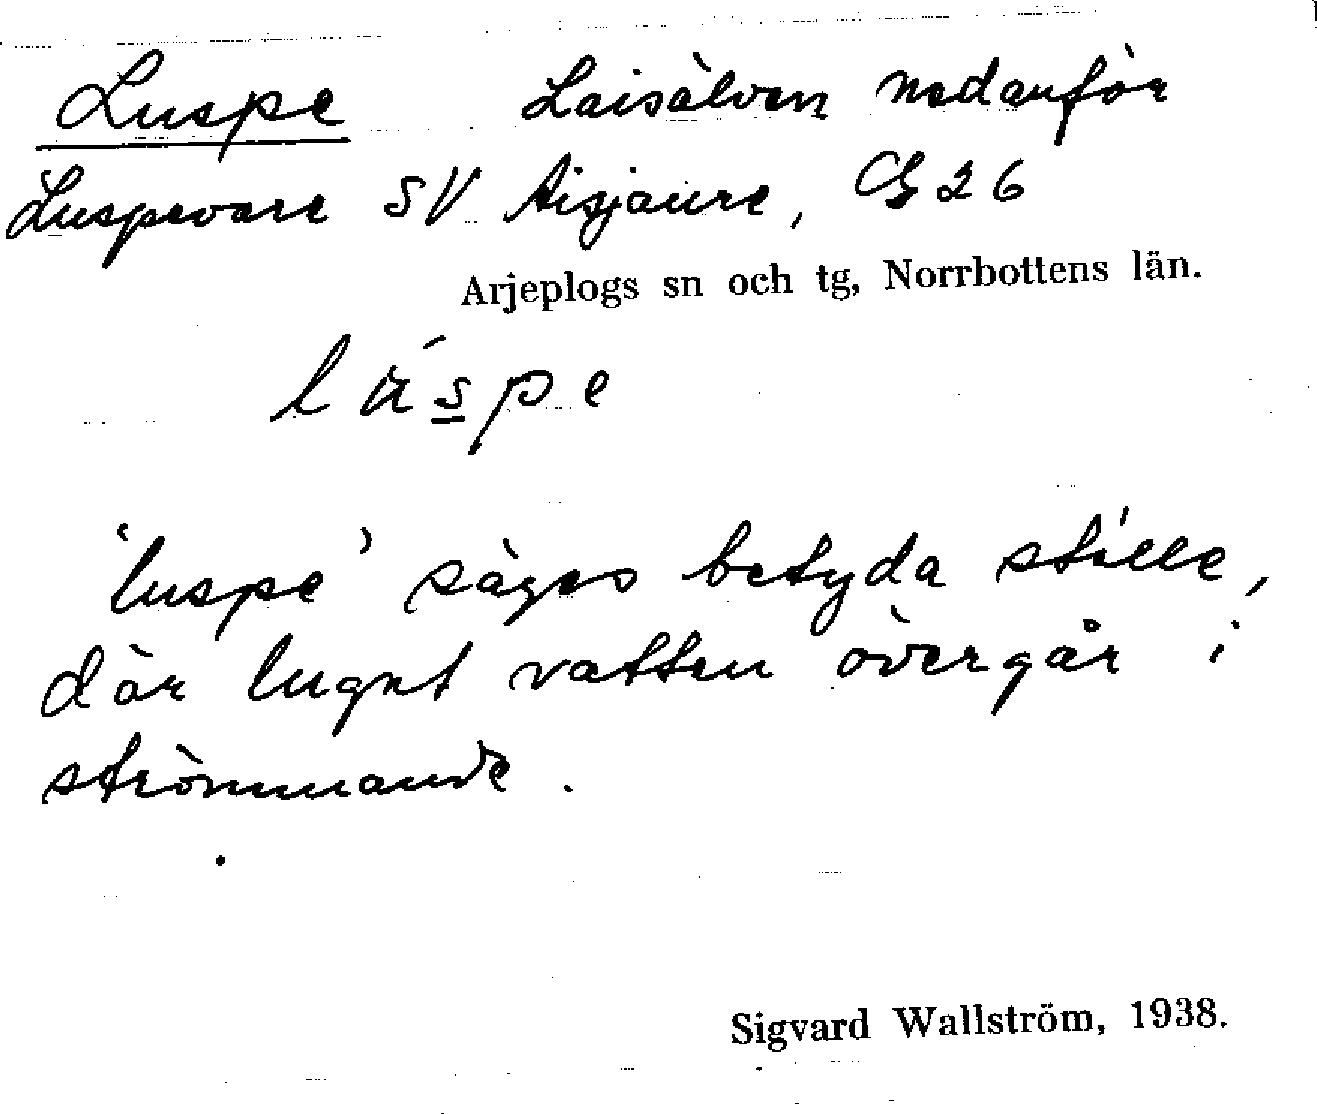 Luspe Laisälven nedanför
Luspevare SV Aisjaure, CG 26
Arjeplogs sn och tg, Norrbottens län.
'luspe' säges betyda ställe,
där lugnt vatten övergår i
strömmande.
Sigvard Wallström, 1938.